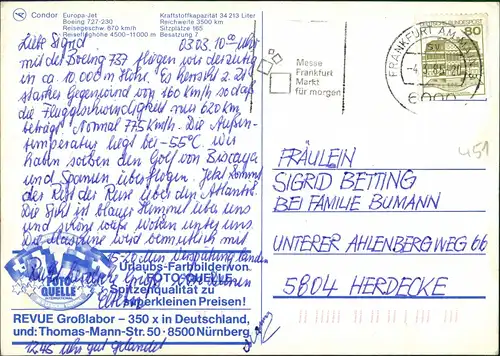 Condor Europa-Jet
Boeing 727-230
Reisegeschw. 870 km
Reiseflughöhe 4500-11000 m
Kraftstoffkapazität 34 213 Liter
Reichweite 4300 km
Sitzplätze 165
Besatzung 7
Liebe Sigrid 03.03. 10⁰⁰ Uhr
mit der Boeing 737 fliegen wir derzeitig
in ca. 10.000 m Höhe. Es herrscht
starker Gegenwind von 160 km/h so daß
die Fluggeschwindigkeit nur 620 km
beträgt. Normal 775 km/h. Die Außen-
temperatur liegt bei -55°C. Wir
haben soeben den Golf von Biscaya
und Spanien überflogen. Jetzt kommt
der Rest der Reise über den Atlantik.
Die Sicht ist blauer Himmel über uns
und schöne weiße Wolken unter uns.
Die Maschine wird vermutlich mit
15-20 min Verspätung landen
FOTO QUELLE INTERNATIONAL
Urlaubs-Farbbilder von
FOTO-QUELLE
Spitzenqualität zu
superkleinen Preisen!
REVUE Großlabor – 350 x in Deutschland,
und: Thomas-Mann-Str. 50 · 8500 Nürnberg
12.45 Uhr gut gelandet
Messe
Frankfurt
Markt
für morgen
FRANKFURT AM MAIN
6000
DEUTSCHE BUNDESPOST
80
451
FRÄULEIN
SIGRID BETTING
BEI FAMILIE BUMANN
UNTERER AHLENBERG WEG 66
5804 HERDECKE